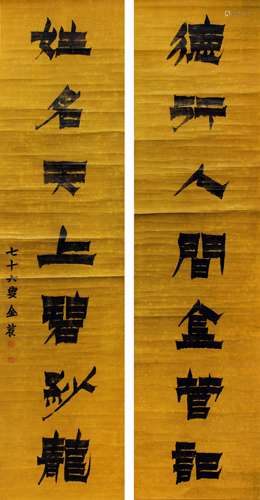 德行人間金管記
姓名天上碧紗籠
七十六叟金農